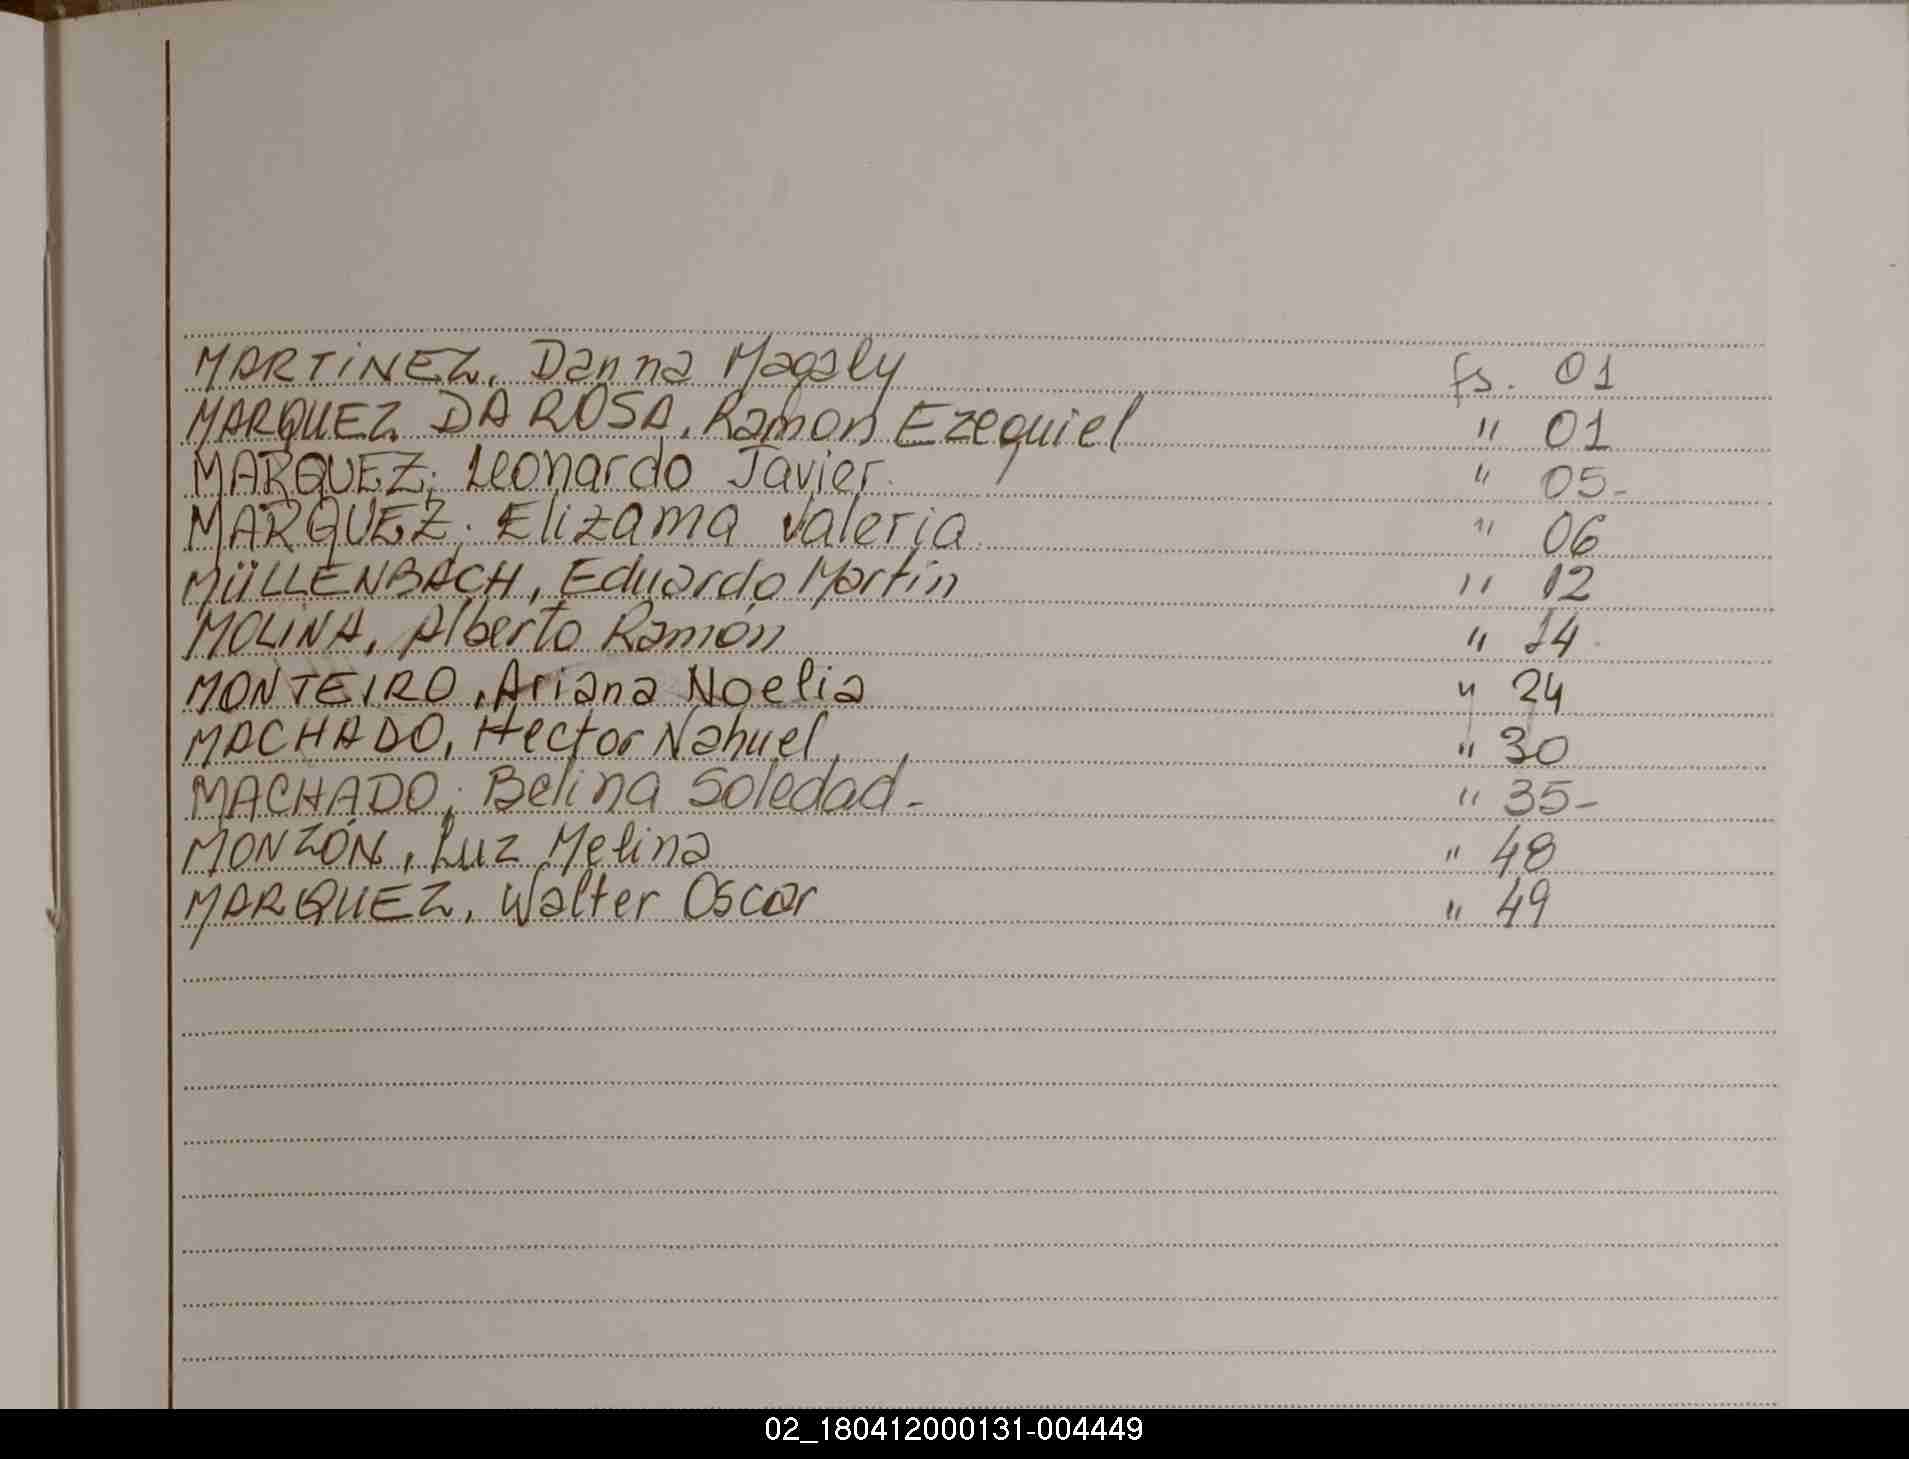 MARTiNEZ, Danna Magaly fs. 01
MARQUEZ DA ROSA, Ramon Ezequiel " 01
MARQUEZ; Leonardo Javier. " 05-
MARQUEZ; Elizama Valeria. " 06
MÜLLENBACH, Eduardo Martín " 12
MOLINA, Alberto Ramón " 14
MONTEIRO, Ariana Noelia " 24
MACHADO, Hector Nahuel " 30
MACHADO; Belina Soledad- " 35-
MONZÓN, Luz Melina " 48
MARQUEZ, Walter Oscar " 49
02_180412000131-004449